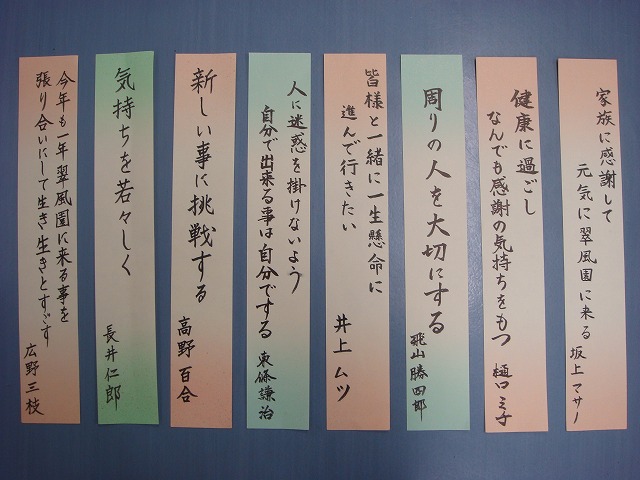 家族に感謝して
元気に翠風園に来る
坂上マサノ
健康に過ごし
なんでも感謝の気持ちをもつ
樋口ミ子
周りの人を大切にする
飛山勝四郎
皆様と一緒に一生懸命に
進んで行きたい
井上ムツ
人に迷惑を掛けないよう
自分で出来る事は自分でする
東條謙治
新しい事に挑戦する
高野百合
気持ちを若々しく
長井仁郎
今年も一年翠風園に来る事を
張り合いにして生き生きとすごす
広野三枝